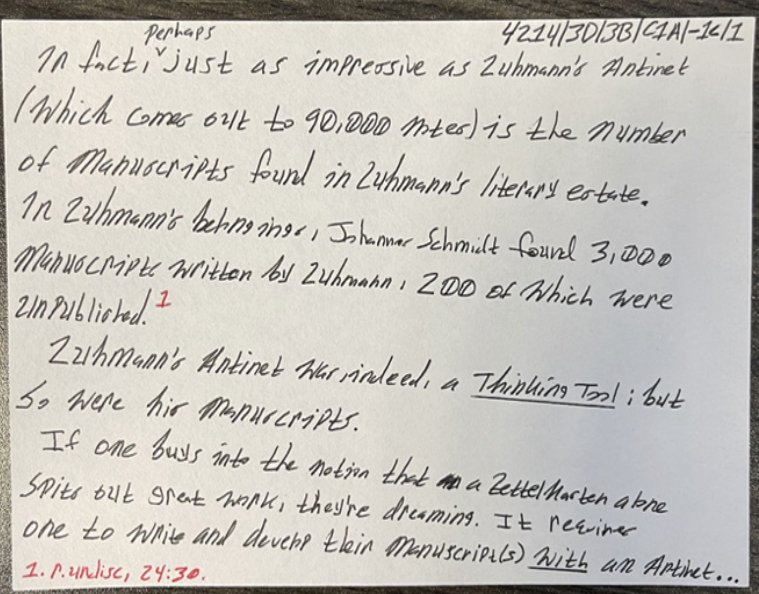 4214/3D/3B/C1A/-1c/1
perhaps
In fact, ˅just as impressive as Luhmann's Antinet
(Which comes out to 90,000 notes) is the number
of manuscripts found in Luhmann's literary estate.
In Luhmann's belongings, Johannes Schmidt found 3,000
manuscripts written by Luhmann, 200 of which were
unpublished.1
Luhmann's Antinet was, indeed, a Thinking Tool; but
So were his manuscripts.
If one buys into the notion that a Zettelkasten alone
spits out great work, they're dreaming. It requires
one to write and develop their manuscript(s) with an Antinet...
1. r.undisc, 24:30.